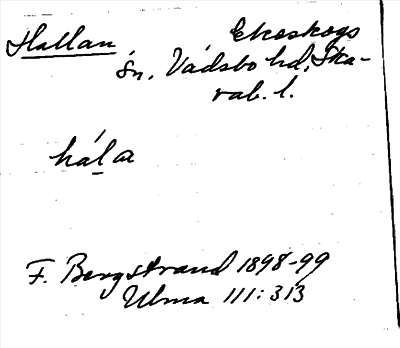 Hallan Ekeskogs
Sn, Vadsbo hd, Ska-
rab. l.
håla
F. Bergstrand 1898-99
Ulma 111:313